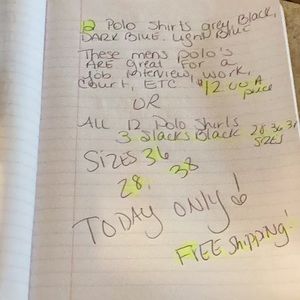 12 Polo Shirts grey, Black,
DARK BLUE, Light Blue
These mens polo's
ARE great for a
Job interview, work,
Court, ETC. $12.00 A
piece
OR
ALL 12 Polo Shirts
3 Slacks Black 28 36 38
SIZES
SIZES 36
28, 38
TODAY ONLY!
FREE Shipping!